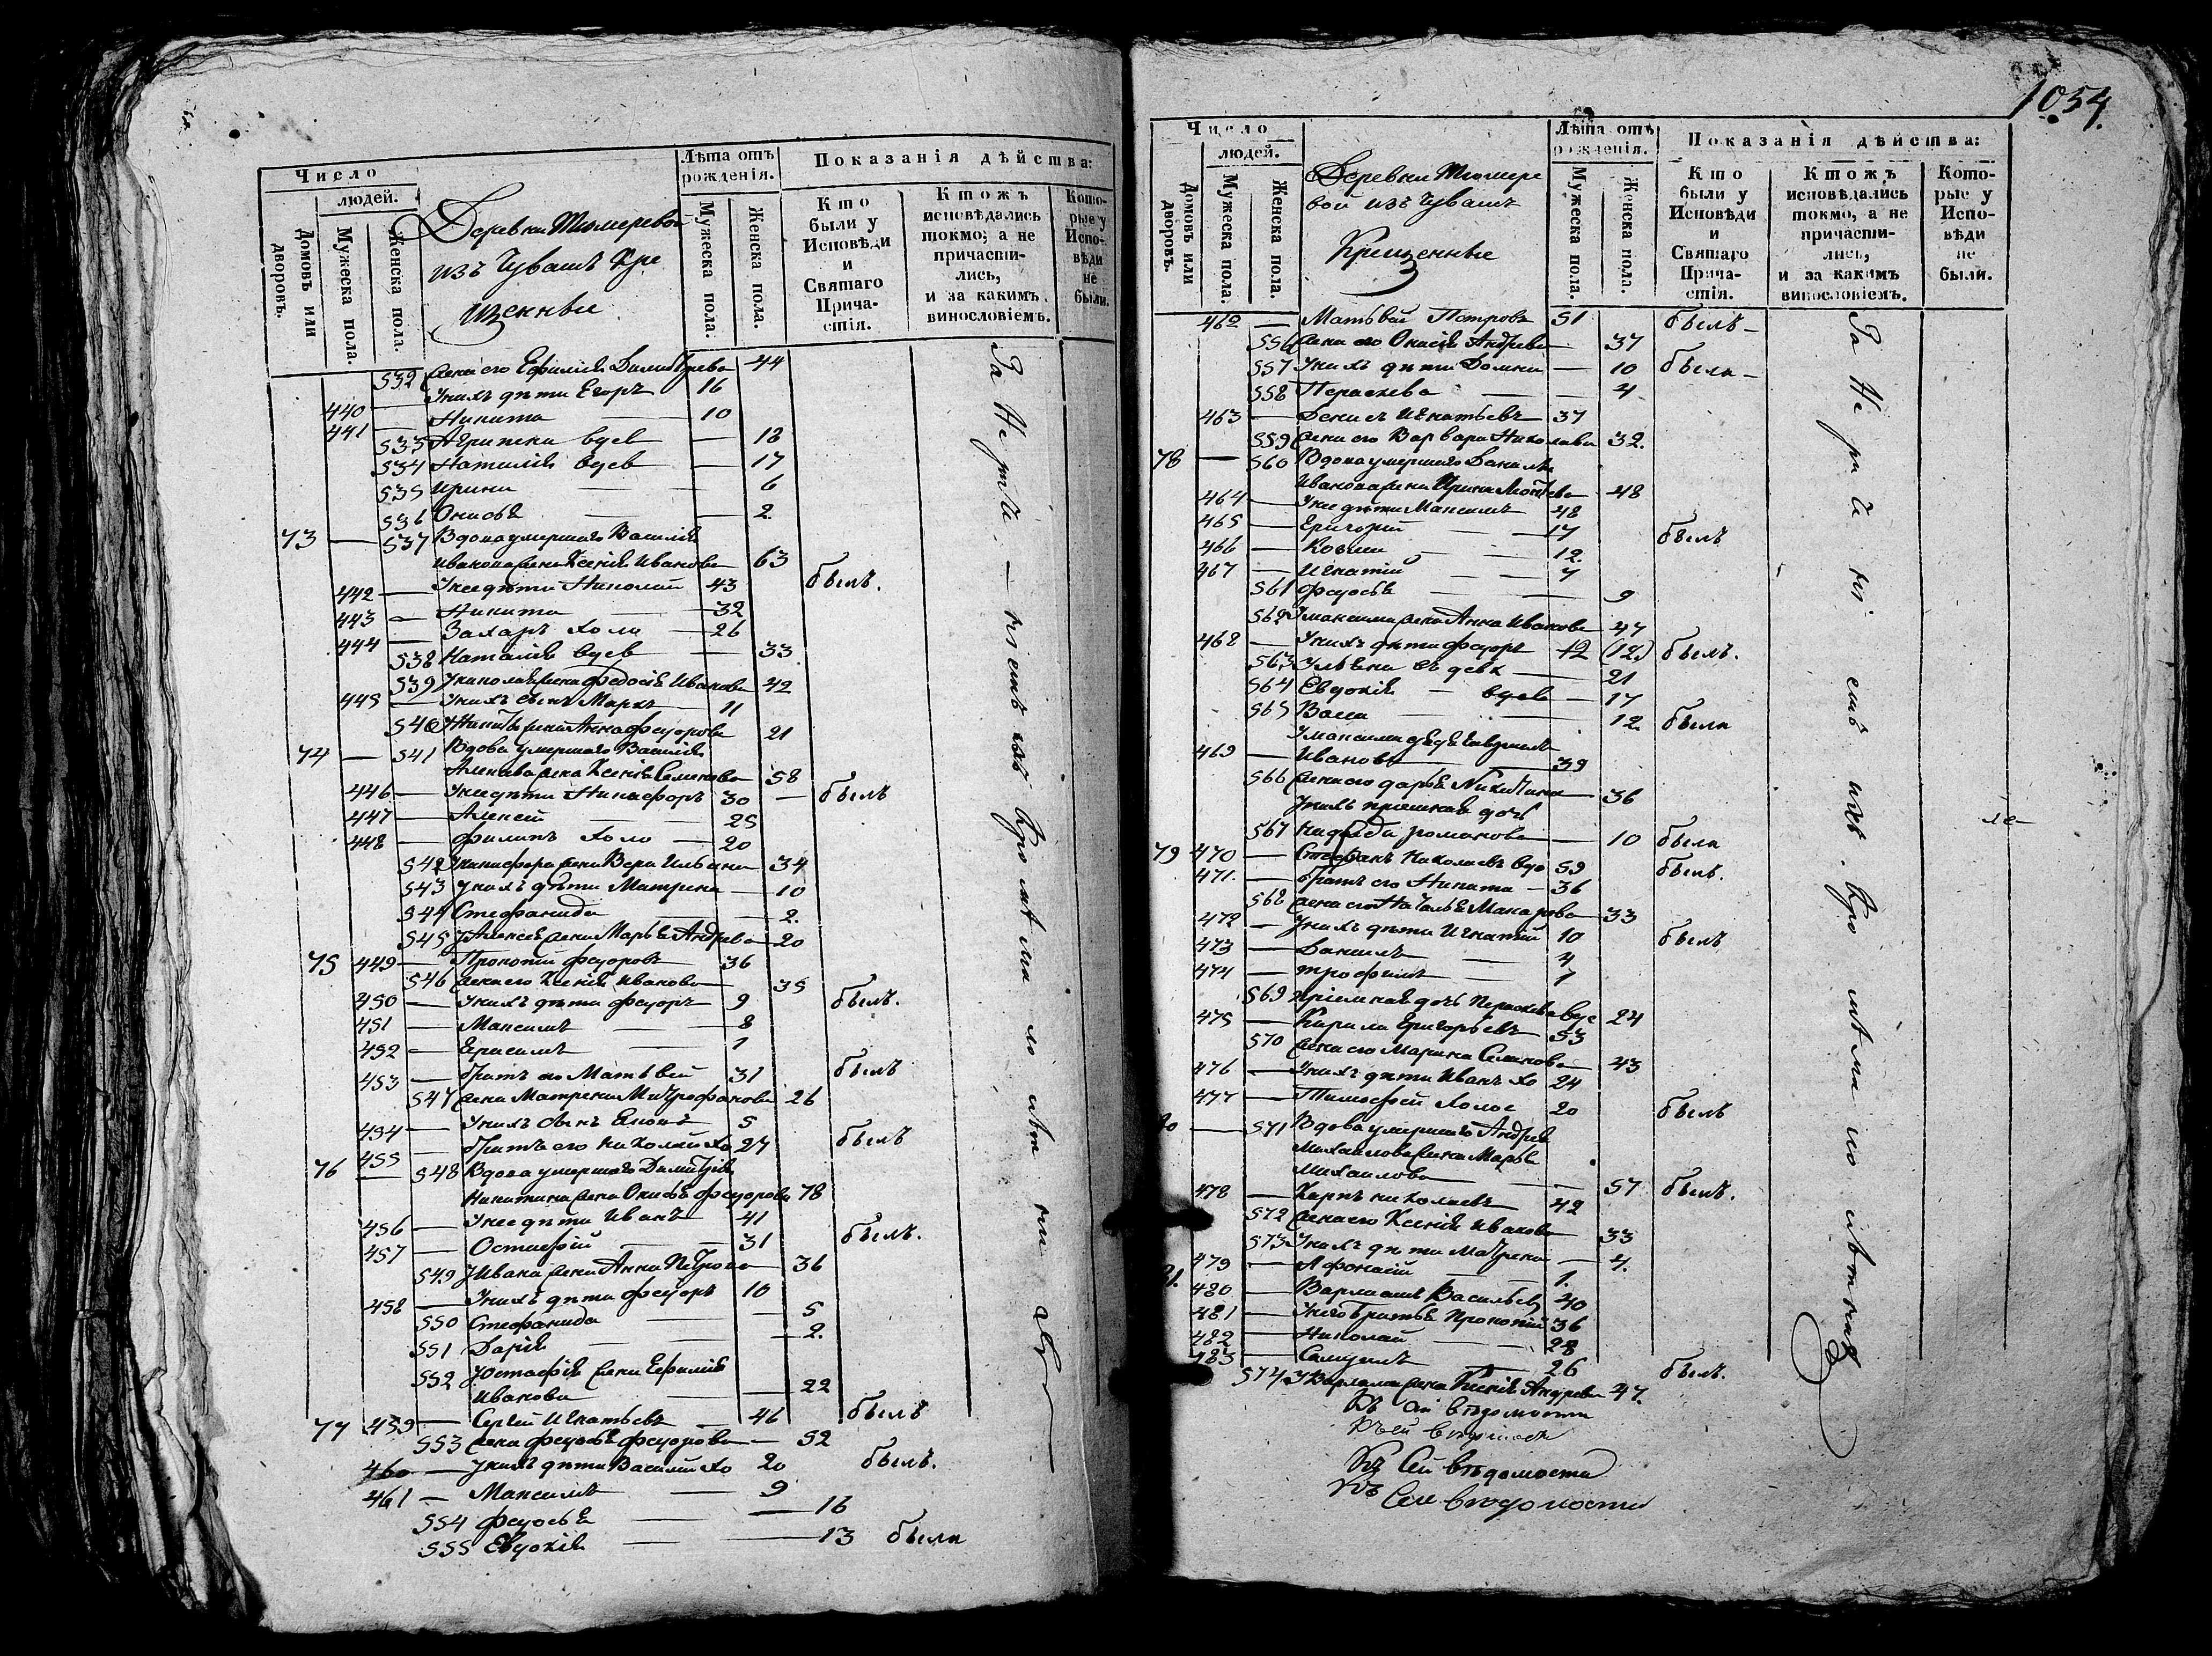 Число
людей.
Домовъ или дворовъ.
Мужеска пола.
Женска пола.
Деревни Тюмеревой
изъ Чувашъ Кре
щенные
Лѣта отъ рожденія.
Мужеска пола.
Женска пола.
Показанія дѣйства:
Кто были у Исповѣди и Святаго Причастія.
Ктожъ исповѣдались токмо, а не причастились, и за какимъ винословіемъ.
Которые у Исповѣди не были.
532 жена его Ефимія Димитрева 44
440 — Уних дѣти Егоръ 16
441 — Никита — 10
533 Агрипена вдев — 18
534 Наталія вдев — 17
535 Ирина — 6
536 — 2
73 — 537 Вдова умершаго Василія
Иванова жена Ксенія Иванова 63
442 — Унее дѣти Николай 43 былъ.
443 — Никита — 32
444 — Захаръ холо — 26
538 Наталія вдев — 33
539 Униколая жена Федосія Иванова 42
445 — Унихъ сынъ Маркъ 11
540 Уникиты жена Анна Федорова 21
74 — 541 Вдова умершаго Василія
жена Ксенія Семенова 58
446 — Унее дѣти Никифоръ 30 — былъ
447 — Алексей — 25
448 — Филипъ холо — 20
542 Уникифора жена Вера Ильина 34
543 Унихъ дѣти Матрена — 10
544 Стефанида — 2.
545 Уалексея жена Марья Андрева — 20
75 449 — Прокопій Федоровъ 36
546 жена его Ксенія Иванова 35
450 — Унихъ дѣти Федоръ 9 былъ.
451 — Максимъ — 8
452 — Герасимъ — 1
453 — братъ его Матвѣй 31 былъ
547 жена Матрена Митрофанова 26
454 — Унихъ сынъ 5
455 — братъ его Николай хо 27 былъ
76 — 548 Вдова умершаго Димитрія
Никитина жена Федорова 78
456 — Унее дѣти Иванъ 41
457 — Остафій — 31 былъ.
549 Уивана жена Анна Петрова 36
458 — Унихъ дѣти Федоръ 10
550 Стефанида — 5
551 Дарія — 2.
552 Уостафія жена Ефимія
Иванова — 22
77 459 — Сергей Игнатьевъ — 46 былъ
553 жена Федосья Федорова — 52
460 — Унихъ дѣти Василій хо 20 былъ.
461 — Максимъ — 9
554 Федосья — 16
555 Евдокія — 13 была
1054.
Число
людей.
Домовъ или дворовъ.
Мужеска пола.
Женска пола.
Деревни Тюмере
вой изъ Чувашъ
Крещенные
Лѣта отъ рожденія.
Мужеска пола.
Женска пола.
Показанія дѣйства:
Кто были у Исповѣди и Святаго Причастія.
Ктожъ исповѣдались токмо, а не причастились, и за какимъ винословіемъ.
Которые у Исповѣди не были.
462 — Матвѣй Петровъ 51 былъ —
556 жена его Андрева 37
557 Унихъ дѣти Домна — 10 была —
558 Параскева — 4
463 — Денисъ Игнатьевъ 37
559 жена его Варвара Николаева 32.
78 — 560 Вдова умершаго Данила
Иванова жена Ирина 48
464 — Унее дѣти Максимъ 28
465 — Григорій — 17 былъ
466 — Козма — 12
467 — Игнатій — 7
561 Федосья — 9
562 Умаксима жена Анна Иванова 27
468 — Унихъ дѣти Федоръ 12 (12.) былъ.
563 Ульяна — 21
564 Евдокія — вдев — 17
565 Васса — 12 была
Умаксима дядя Гавриилъ
469 — Ивановъ — 39
566 жена его Дарья Никитина 36
Унихъ приемная дочь
567 Надежда Романова — 10 была
79 470 — Стефанъ Николаевъ вдо 59 былъ.
471. — братъ его Никита — 36
568 жена его Наталья Макарова 33
472 — Унихъ дѣти Игнатій 10 былъ
473 — Данилъ — 4
474 — Трофимъ — 1
569 пріемная дочь Параскева вде 24
475 — Кирила Григорьевъ 53
570 жена его Марина Семенова — 43
476 — Унихъ дѣти Иванъ хо 24
477 — Тимофей холос 20 былъ
— 571 Вдова умершаго Андрея
Михаилова жена Марья
Михаилова — 57 былъ.
478 — Карпъ Николаевъ 42
572 жена его Ксенія Иванова 33
573 Унихъ дѣти Матрена — 4.
479 — Афонасій — 1.
81. 480 — Варламъ Васильевъ 40
481 — Унего братья Прокопій 36
482 — Николай — 28
483 — Самуилъ — 26 былъ.
574 Уварлама жена Ксенія Андрева 47.
Къ сей вѣдомости
Къ сей вѣдомости
Къ Сей вѣдомости
Къ
Сей вѣдомости